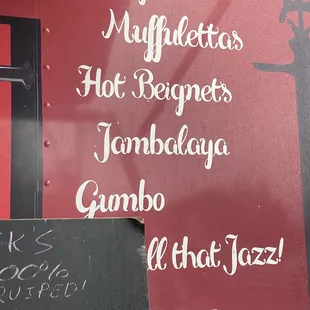 Muffulettas
Hot Beignets
Jambalaya
Gumbo
ll that Jazz!
K'S
00%
QUIPED!